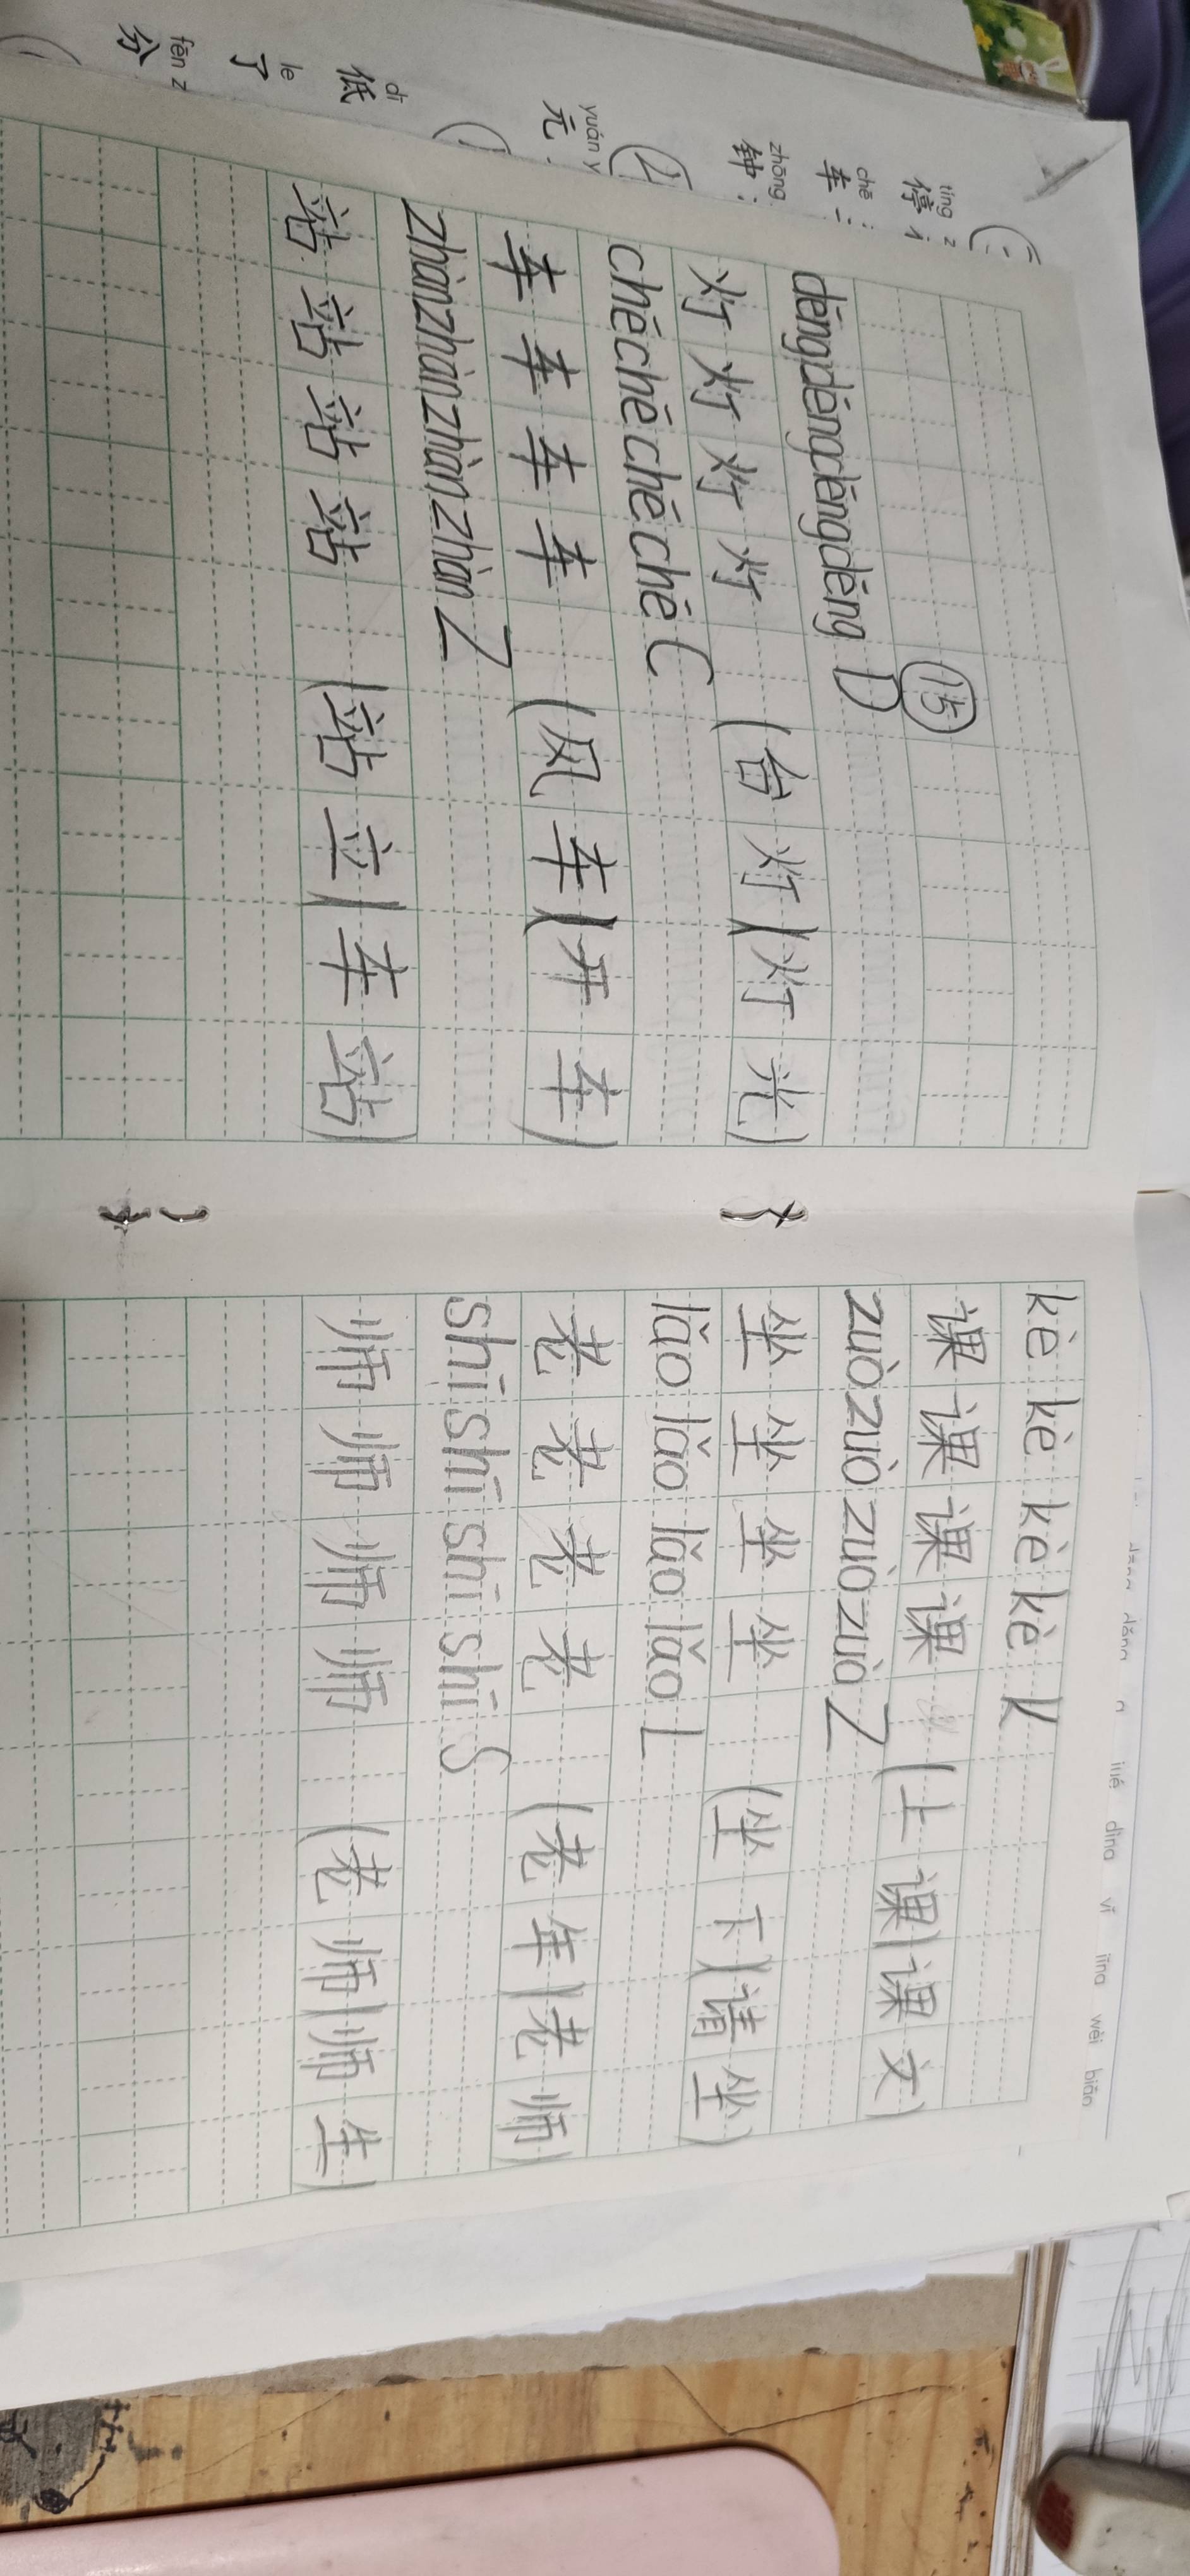 ⑮
dēngdēngdēngdēng D
灯灯灯灯 (台灯)(灯光)
chēchēchēchē C
车车车车 (风车)(开车)
zhànzhànzhànzhàn Z
站站站站 (站立)(车站)
kè kè kè kè K
课课课课 (上课)(课文)
zuòzuòzuòzuò Z
坐坐坐坐 (坐下)(请坐)
lǎo lǎo lǎo lǎo L
老老老老 (老年)(老师)
shī shī shī shī S
师师师师 (老师)(师生)
tíng
停
chē
车
zhōng
钟
yuán
元
dī
低
le
了
fēn
分